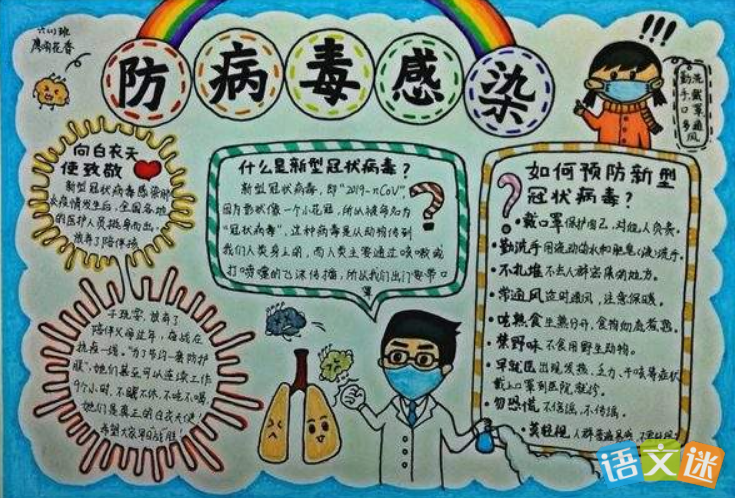 六(1)班
防病毒感染
!!!
勤洗手
戴口罩
多通风
向白衣天
使致敬
新型冠状病毒感染肺
炎疫情发生后，全国各地
的医护人员挺身而出，
放弃了陪伴孩
子玩耍，放弃了
陪伴父母过年，奋战在
抗疫一线。“为了节约一套防护
服”，她们甚至可以连续工作
9个小时，不眠不休，不吃不喝，
她们是真正的白衣天使！
希望大家早日战胜
什么是新型冠状病毒？
新型冠状病毒，即“2019-nCoV”，
因为形状像一个小花冠，所以被命名为
“冠状病毒”，这种病毒是从动物传到
我们人类身上的，而人类主要通过咳嗽或
打喷嚏的飞沫传播，所以我们出门要带口
罩
?
如何预防新型
冠状病毒？
?
戴口罩保护自己，对他人负责。
勤洗手用流动的水和肥皂(液)洗手。
不扎堆不去人群密集的地方。
常通风适时通风，注意保暖。
吃熟食生熟分开，食物彻底煮熟。
禁野味不食用野生动物。
早就医出现发热、乏力、干咳等症状
戴上口罩到医院就诊。
勿恐慌不信谣，不传谣。
莫轻视人群普遍易感，
语文迷